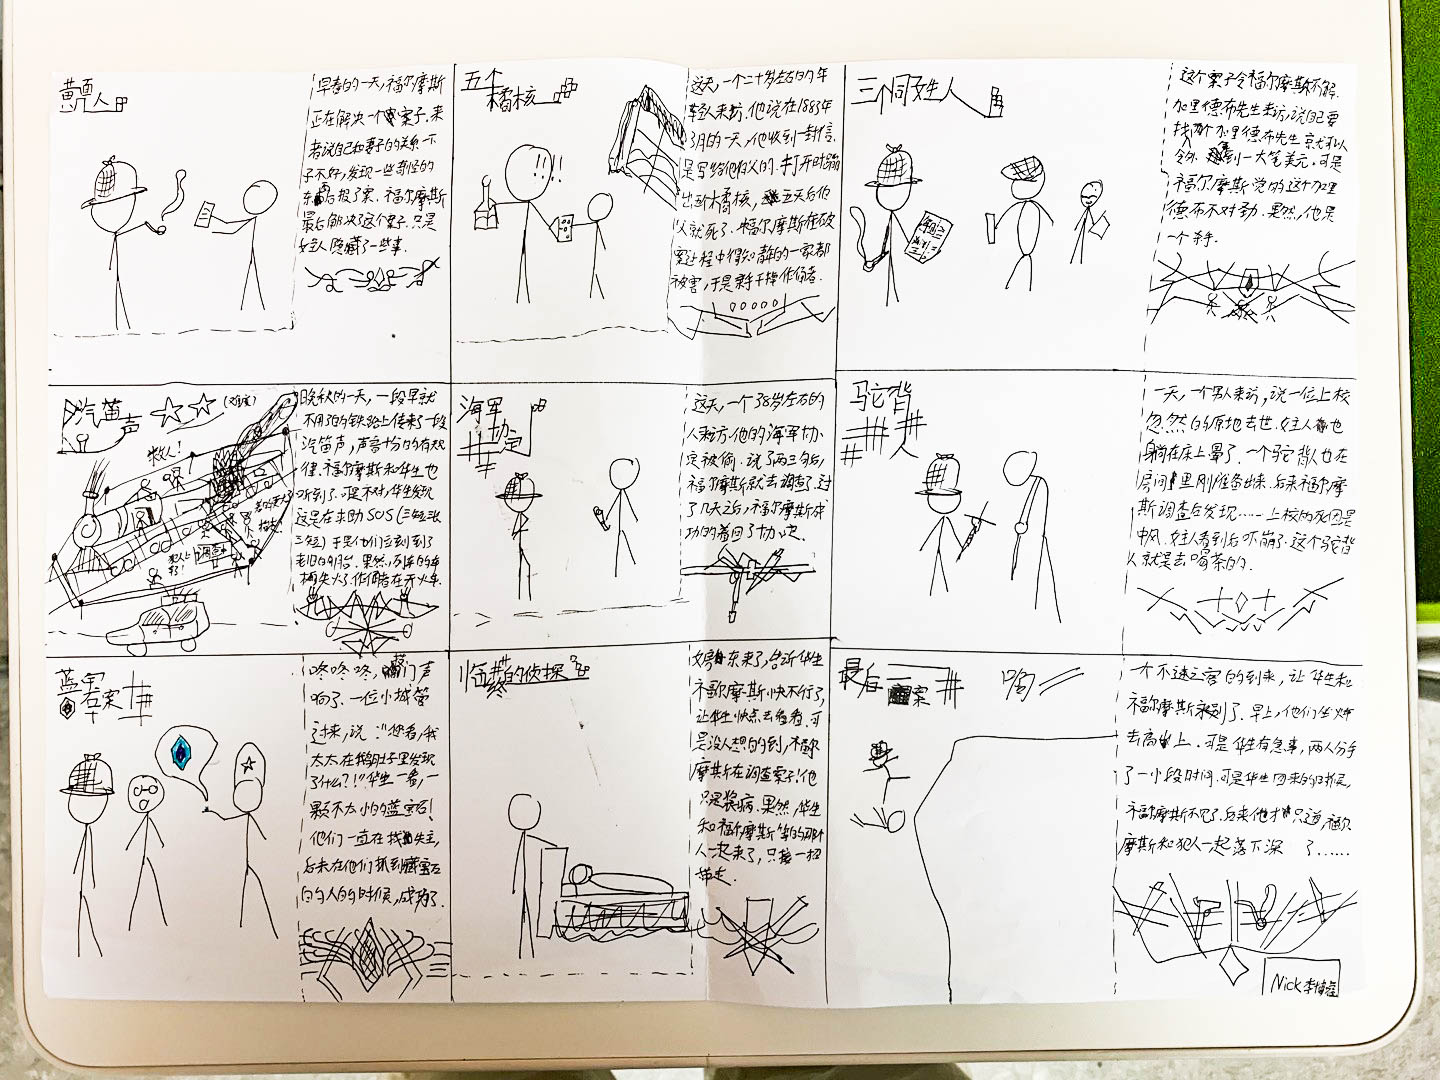 黄面人
早春的一天，福尔摩斯
正在解决一个案子．来
者说自己和妻子的关系一下
子不好，发现一些奇怪的
东西后报了案．福尔摩斯
最后解决了这个案子．只是
女主人隐藏了一些事．
五个
橘核
这天，一个二十岁左右的年
轻人来访．他说在1883年
3月的一天，他收到一封信．
是写给他伯父的．打开时蹦
出五个橘核，五天后伯
父就死了．福尔摩斯在破
案过程中得知，青年的一家都
被害，于是亲手干掉作俑者．
三个同姓人
这个案子令福尔摩斯不解．
加里德布先生来访，说自己要
找两个加里德布先生就可以
令外 到一大笔美元．可是
福尔摩斯觉的这个加里
德布不对劲．果然，他是
一个杀手．
汽笛声
救人！
晚秋的一天，一段早就
不用了的铁路上传来了一段
汽笛声，声音十分的有规
律．福尔摩斯和华生也
听到了．可是不对，华生发现
这是在求助SOS(三短三长
三短)于是他们立刻到了
老旧的月台．果然，列车的车
厢失火了．作俑者在开火车．
海军
协定
这天，一个38岁左右的
人来访．他的海军协
定被偷．说了两三句后，
福尔摩斯就去调查了．过
了几天之后，福尔摩斯成
功的着回了协定．
驼背
人
一天，一个男人来访，说一位上校
忽然的原地去世．女主人也
躺在床上晕了．一个驼背人也在
房间里刚准备出来．后来福尔摩
斯调查后发现……上校的死因是
中风．女主人看到后吓崩了．这个驼背
人就是去喝茶的．
蓝宝
石案
咚咚咚，敲门声
响了．一位小城管
过来，说："您看，我
太太在鹅肚子里发现
了什么？！"华生一看，一
颗不大小的蓝宝石！
他们一直在找失主，
后来在他们抓到藏宝石
的人的时候，成功了．
临终的侦探
女房东来了，告诉华生
福尔摩斯快不行了，
让华生快点去看看．可
是没人想的到，福尔
摩斯在调查案子！他
只是装病．果然，华生
和福尔摩斯等的那个
人一起来了，只接一招
带走．
最后一案
啊
一个不速之客的到来，让华生和
福尔摩斯来到了．早上，他们坐火车
去高山上．可是华生有急事，两人分开
了一小段时间．可是华生回来的时候，
福尔摩斯不见了．后来他才知道，福尔
摩斯和犯人一起落下深 了……
Nick李